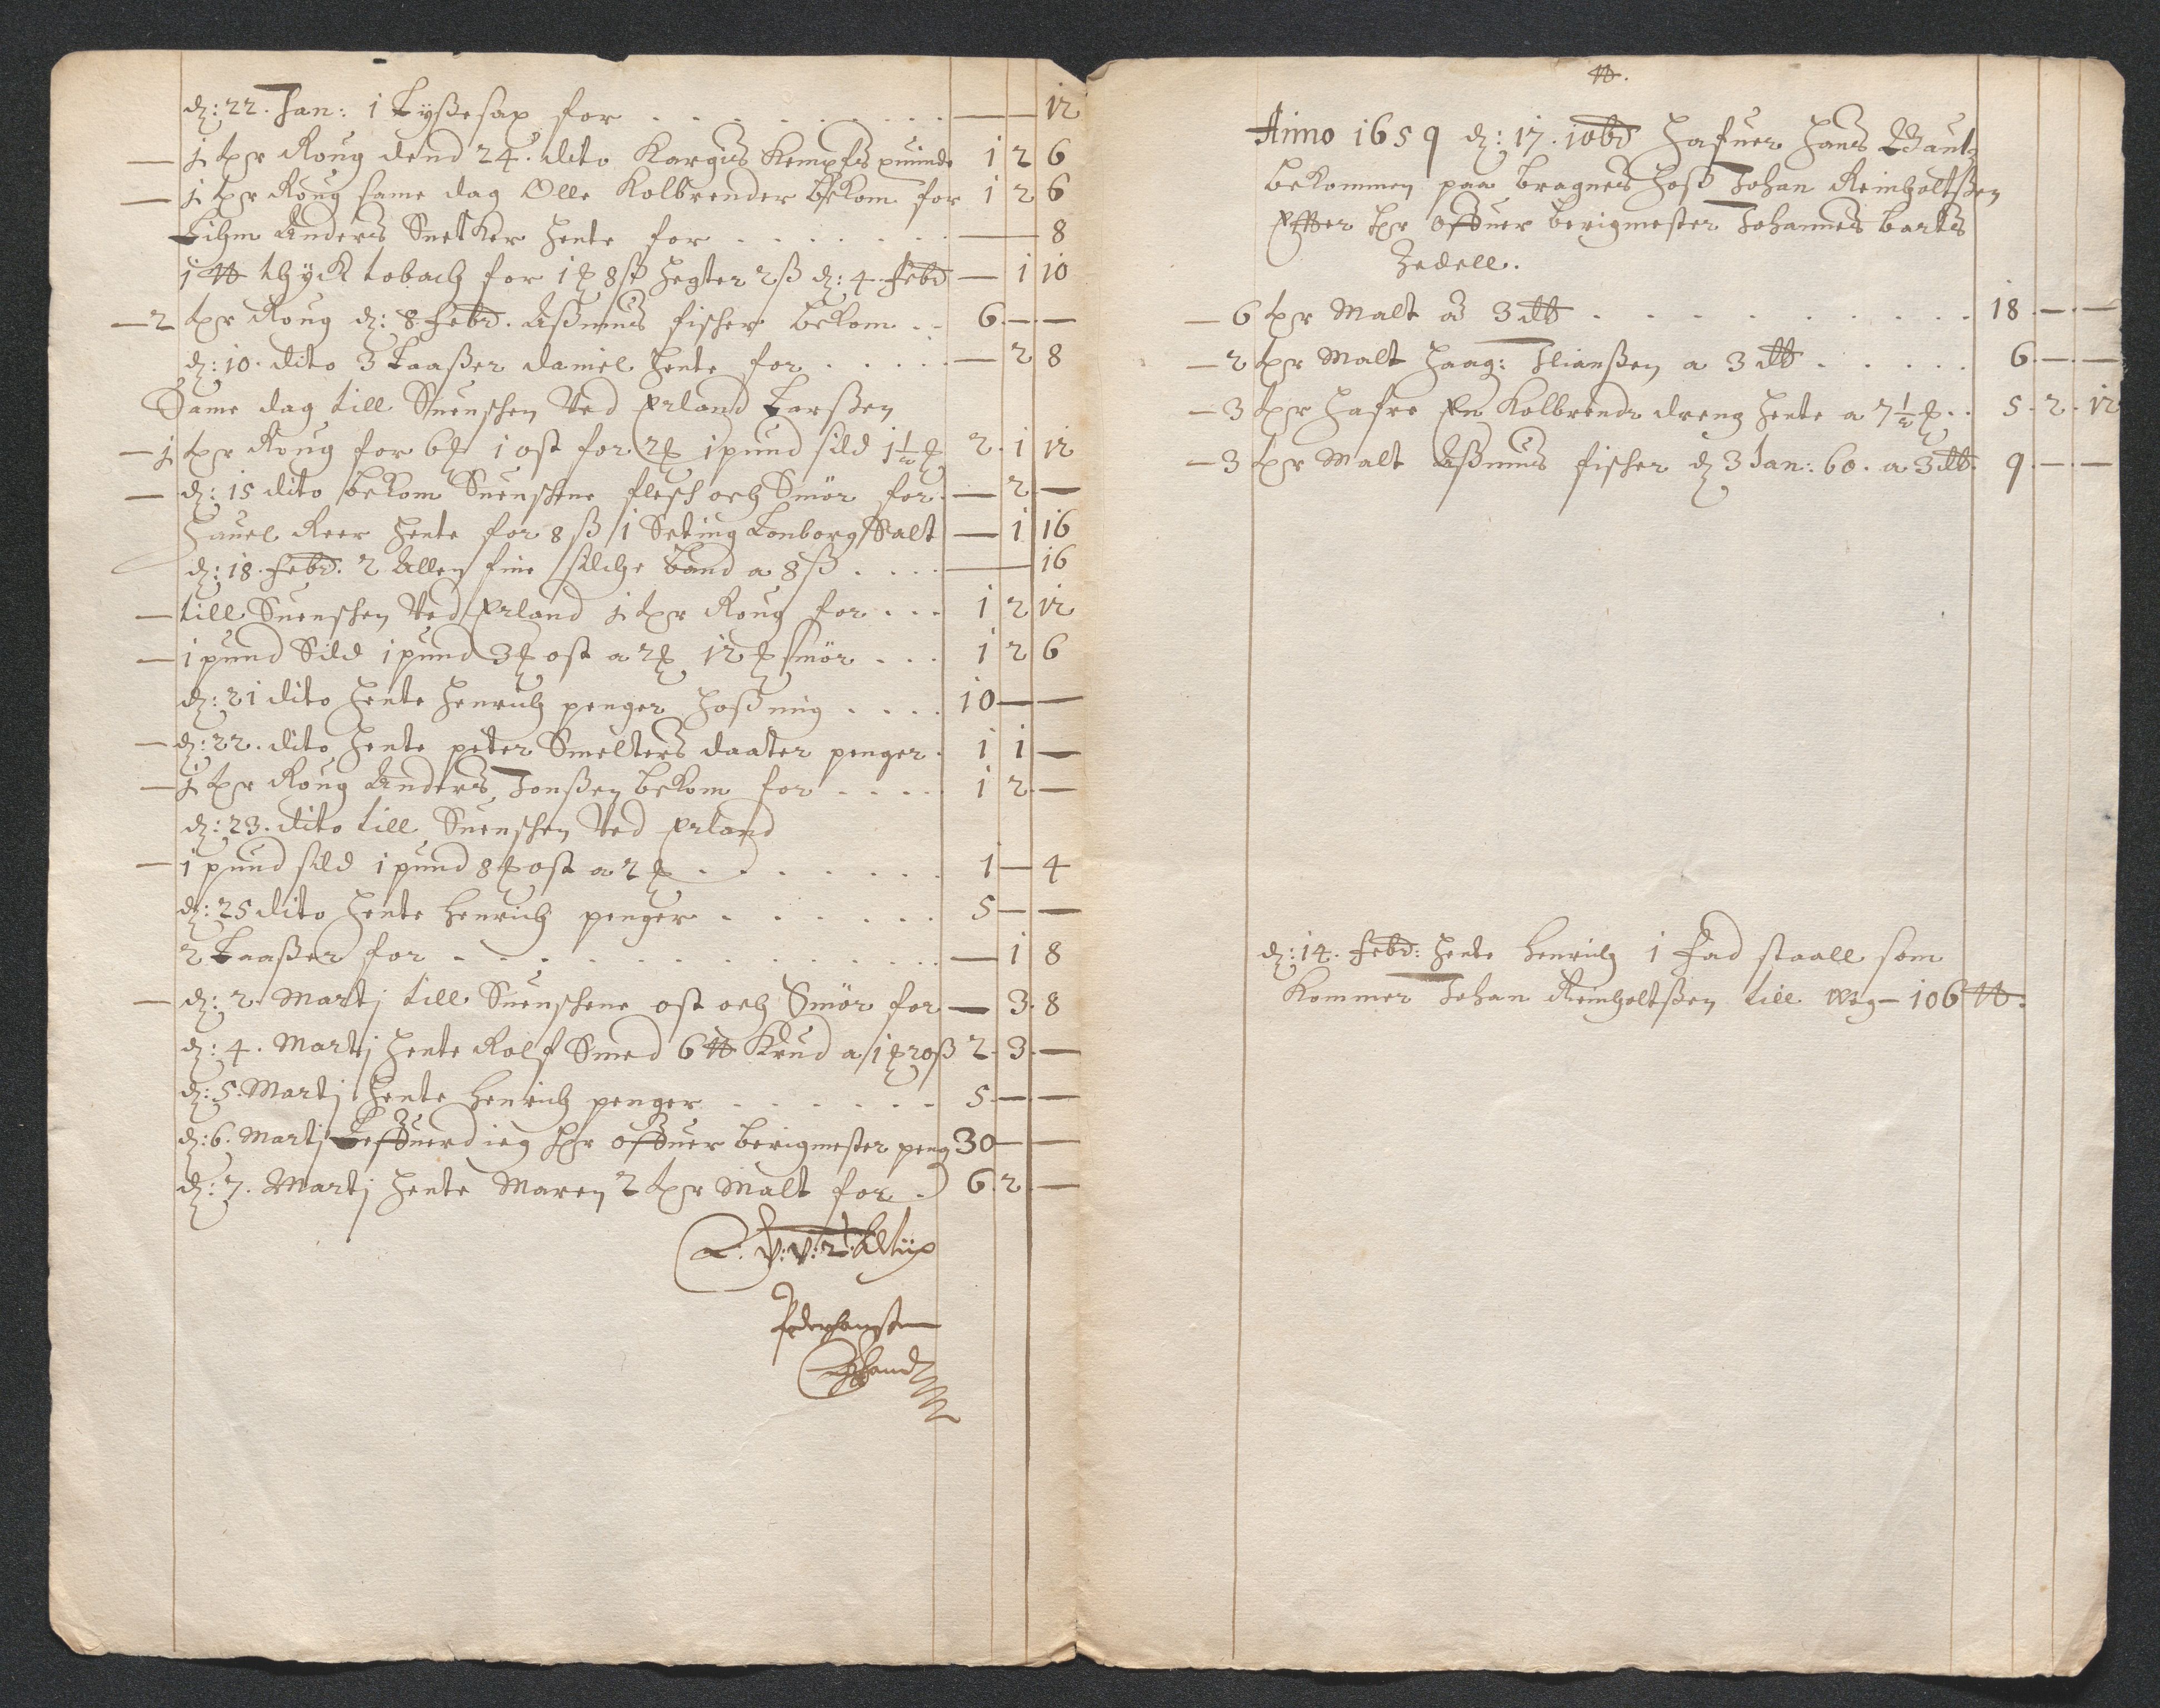 d: 22. Jan: 1 Lyßesax for . . . . . . . — — 12
— ½ tpr Roug dend 24. dito Kargus Kempfs quinde 1 2 6
— ½ tpr Roug same dag Olle Kolbrender bekom for 1 2 6
Lihm Anders Snetker hente for . . . . . . — — 8
1 ℔ thyck tobach for 1 ℔ 8 ß hegter 2 ß d: 4. Febr — 1 10
— 2 tpr Roug d: 8. Febr. Aßmus fischer bekom . . 6 — —
d: 10. dito 3 Laaßer daniel hente for . . . . . — 2 8
Same dag till Suenschen Ved Erland Larßen
— ½ tpr Roug for 6 ℔ 1 ost for 2 ℔ 1 pund sild 1½ ℔ 2 1 12
— d: 15 dito bekom Suenschene flesch och Smör for — 2 —
Pauel Reer hente for 8 ß 1 Seting Lonborg Salt — 1 16
d: 18. Febr. 2 Allen fine silche band a 8 ß . . . . — — 16
— till Suenschen Ved Erland ½ tpr Roug for . . . 1 2 12
— 1 pund Sild 1 pund 3 ℔ ost a 2 ℔ 12 ℔ smör . . . 1 2 6
d: 21 dito hente Henrich penger hoß mig . . . . 10 — —
— d: 22. dito hente peter Smelters daater penger . 1 1 —
— ½ tpr Roug Anders Jonßen bekom for . . . . 1 2 —
d: 23. dito till Suenschen Ved Erland
— 1 pund sild 1 pund 8 ℔ ost a 2 ℔ . . . . . . 1 — 4
d: 25 dito hente Henrich penger . . . . . . 5 — —
2 Laaßer for . . . . . . . . . . . — 1 8
— d: 2 Martj till Suenschene ost och Smör for — 3 8
d: 4. Martj hente Rolf Smed 6 ℔ Krud a 1 ℔ 20 ß 2 3 —
d: 5. Martj hente Henrich penger . . . . . . 5 — —
d: 6. Martj Leffuerd ieg hr offuer berigmester peng 30 — —
d: 7. Martj hente Maren 2 tpr Malt for . 6 2 —
Pederhansen
Ehand
℔.
Anno 1659 d: 17. 10br hafuer Hans
bekommen paa bragnes hoß Johan Reinholtßen
Effter hr offuer berigmester Johannes barts
Zedell.
— 6 tpr Malt a 3 dlr . . . . . . . . . 18 — —
— 2 tpr Malt haag: Ilianßen a 3 dlr . . . . . 6 — —
— 3 tpr Hafre En Kolbrendr dreng hente a 7½ ℔ . . 5 2 12
— 3 tpr Malt Aßmus fischer d 3 Jan: 60. a 3 dlr . 9 — —
d: 14. Febr: hente Henrich 1 Fad staall som
Kommer Johan Reinholtßen till Wog — 106 ℔.